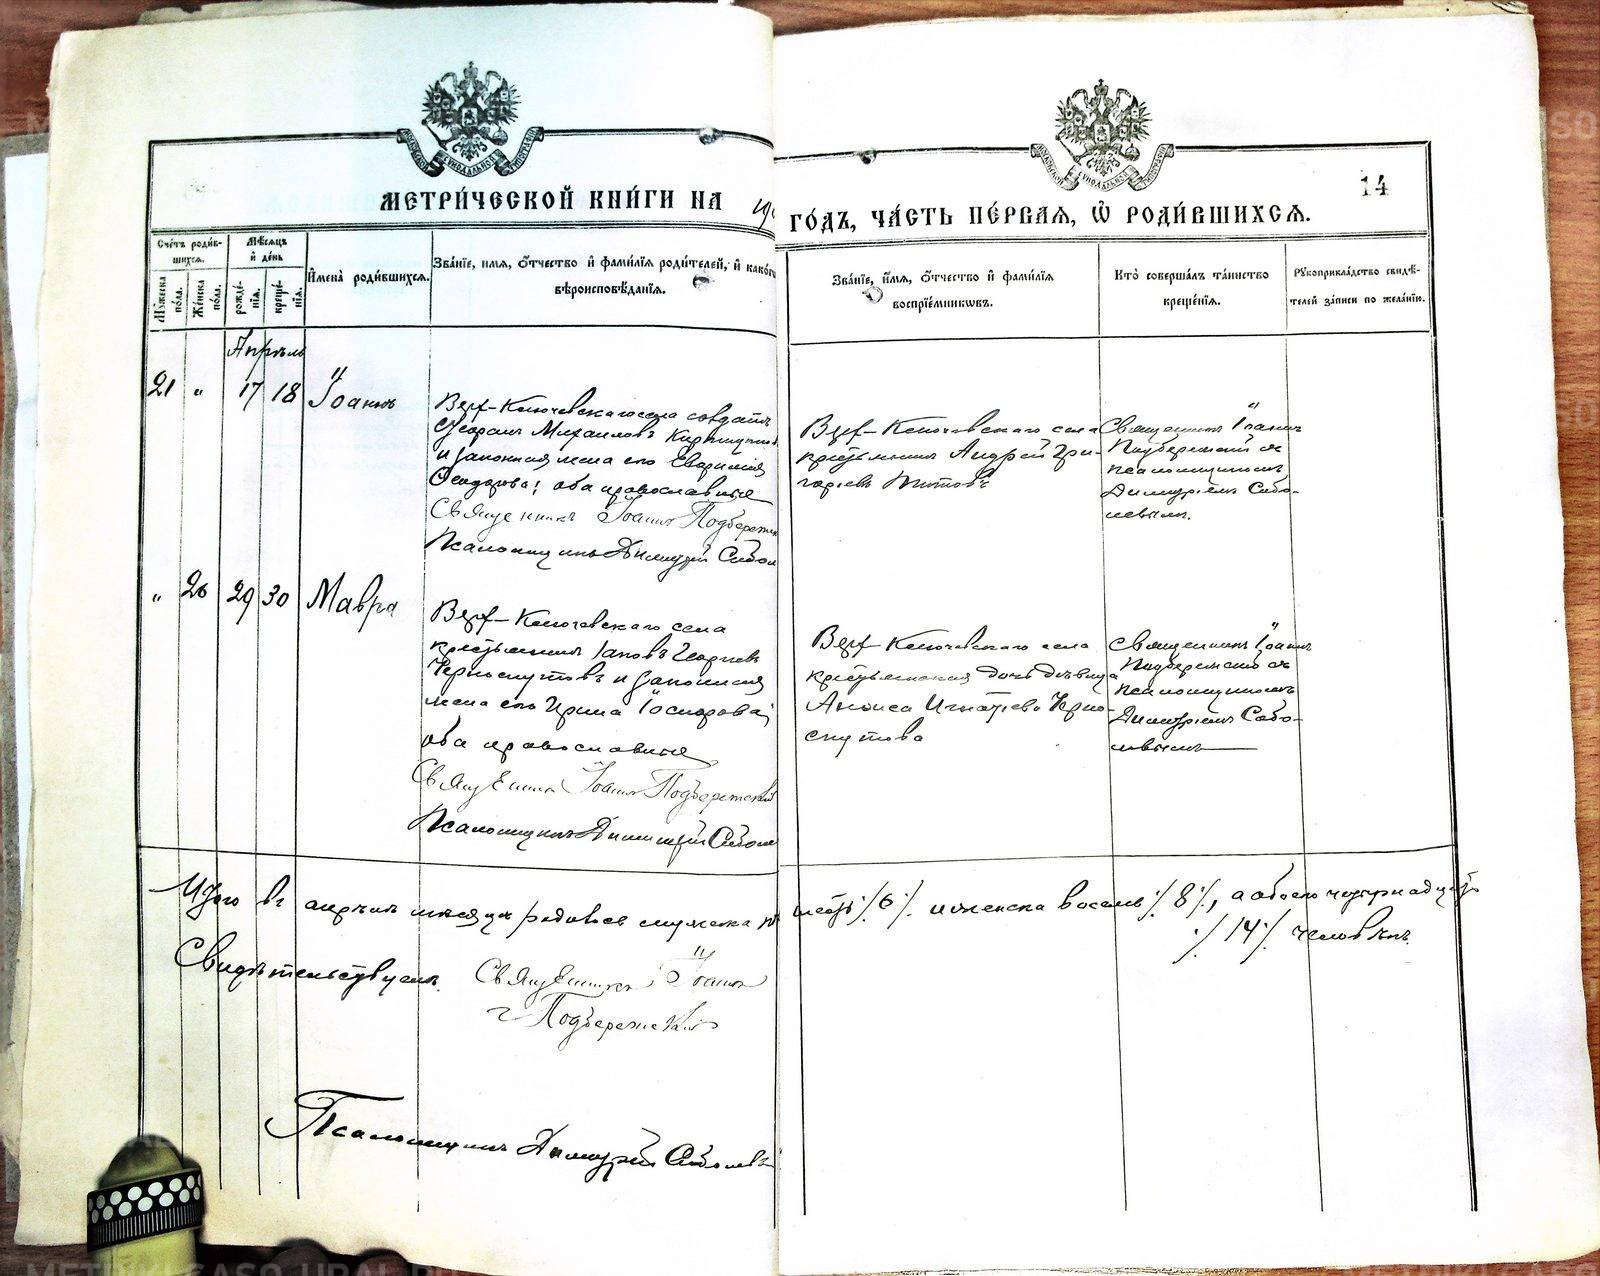 МЕТРИ́ЧЕСКОЙ КНИ́ГИ НА 19
ГО́ДЪ, ЧА́СТЬ ПЕ́РВАѦ, Ѡ҆ РОДИ́ВШИХСѦ.
14
Сче́тъ роди́в-
шихсѧ.
Мѣ́сѧцъ
и҆ де́нь
Мꙋ́жеска по́ла.
Же́нска по́ла.
рожде́-
нїѧ.
креще́-
нїѧ.
И҆мена̀ роди́вшихсѧ.
Зва́нїе, и́мѧ, ѻ҆́тчество и҆ фами́лїѧ роди́телей, и҆ како́гѡ
вѣроисповѣ́данїѧ.
Зва́нїе, и́мѧ, ѻ҆́тчество и҆ фами́лїѧ
воспрїе́мникѡвъ.
Кто̀ соверша́лъ та́инство
креще́нїѧ.
Рꙋкоприкла́дство свидѣ́-
телей за́писи по жела́нїю.
Апрѣль
21 " 17 18 Іоаннъ
Верх-Ключевскаго села солдатъ
Георгій Михаиловъ
и законная жена его Евдокія
Ѳеодорова; оба православные
Священникъ Іоаннъ Подбереж
Псаломщикъ Димитрій Собол
Верх-Ключевскаго села
крестьянинъ Андрей Гри-
горьевъ Титовъ
Священникъ Іоаннъ
Подбережскій съ
псаломщикомъ
Димитріемъ Собо-
левымъ.
" 20 29 30 Мавра
Верх-Ключевскаго села
крестьянинъ Іаковъ Георгіевъ
Черноскутовъ и законная
жена его Ирина
оба православные
Священникъ Іоаннъ Подбережскій
Псаломщикъ Димитрій Собол
Верх-Ключевскаго села
крестьянская дочь дѣвица
Анфиса Игнатіева Черно-
скутова
Священникъ Іоаннъ
Подбережскій съ
псаломщикомъ
Димитріемъ Собо-
левымъ
Итого въ апрѣлѣ мѣсяцѣ родилось мужеска п. шесть /6/. и женска восемь /8/, а обоего четырнадцать
/14/ человѣкъ.
Свидѣтельствуемъ. Священникъ Іоаннъ
Подбережскій
Псаломщикъ Димитрій Соболевъ